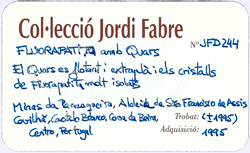 Col·lecció Jordi Fabre
Nº JFD244
FLUORAPATITA amb Quars
El Quars es flotant i extrapla i els cristalls
de Fluorapatita molt isolats
Mines da Panasqueira, Aldeia de São Francisco de Assis
Covilhã, Castelo Branco, Cova da Beira,
Centro, Portugal
Trobat: (±1995)
Adquisició: 1995